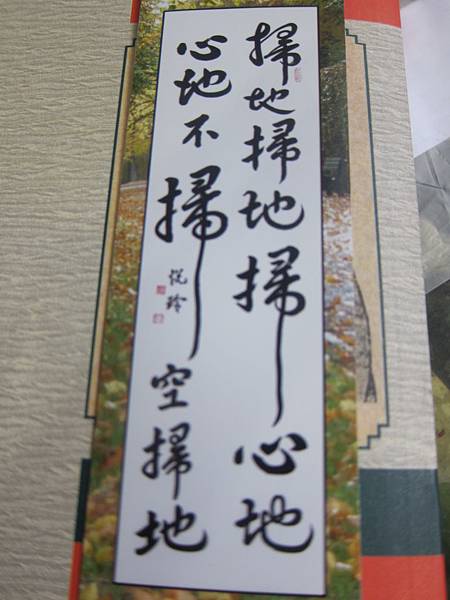 掃地掃地掃心地
心地不掃空掃地
悦玲